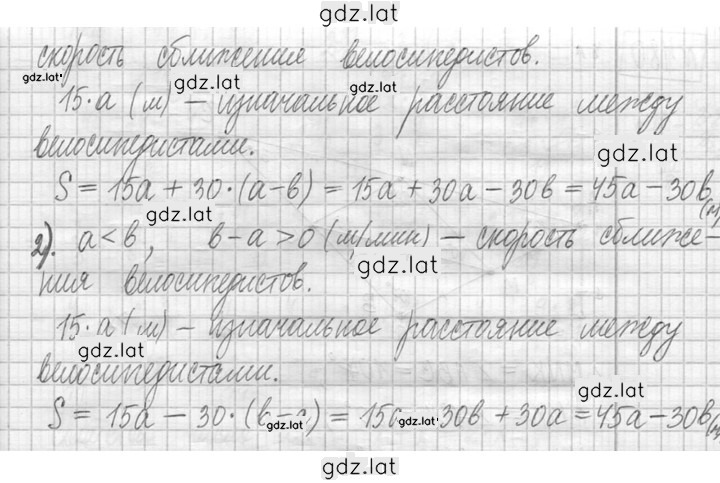 gdz.lat
скорость сближение велосипедистов.
gdz.lat gdz.lat gdz.lat
15·a (м) – изначальное расстояние между
велосипедистами.
gdz.lat
S = 15a + 30·(a–b) = 15a + 30a – 30b = 45a – 30b (м)
gdz.lat
2). a < b, b–a > 0 (м/мин) – скорость сближе–
gdz.lat
ния велосипедистов.
15·a (м) – изначальное расстояние между
gdz.lat
велосипедистами.
gdz.lat
S = 15a – 30·(b–a) = 15a 30b + 30a = 45a – 30b (м)
gdz.lat gdz.lat
gdz.lat